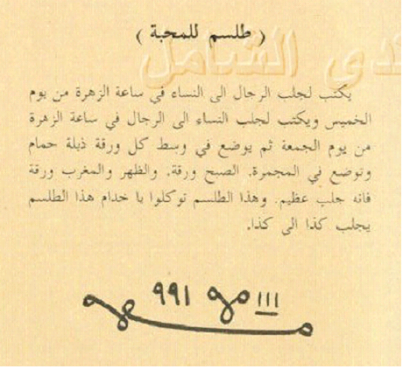 ( طلسم للمحبة )
منتدى الشامل
يكتب لجلب الرجال الى النساء في ساعة الزهرة من يوم
الخميس ويكتب لجلب النساء الى الرجال في ساعة الزهرة
من يوم الجمعة ثم يوضع في وسط كل ورقة ذبلة حمام
وتوضع في المجمرة. الصبح ورقة. والظهر والمغرب ورقة
فانه جلب عظيم. وهذا الطلسم توكلوا با خدام هذا الطلسم
يجلب كذا الى كذا.
ااا ٩٩١